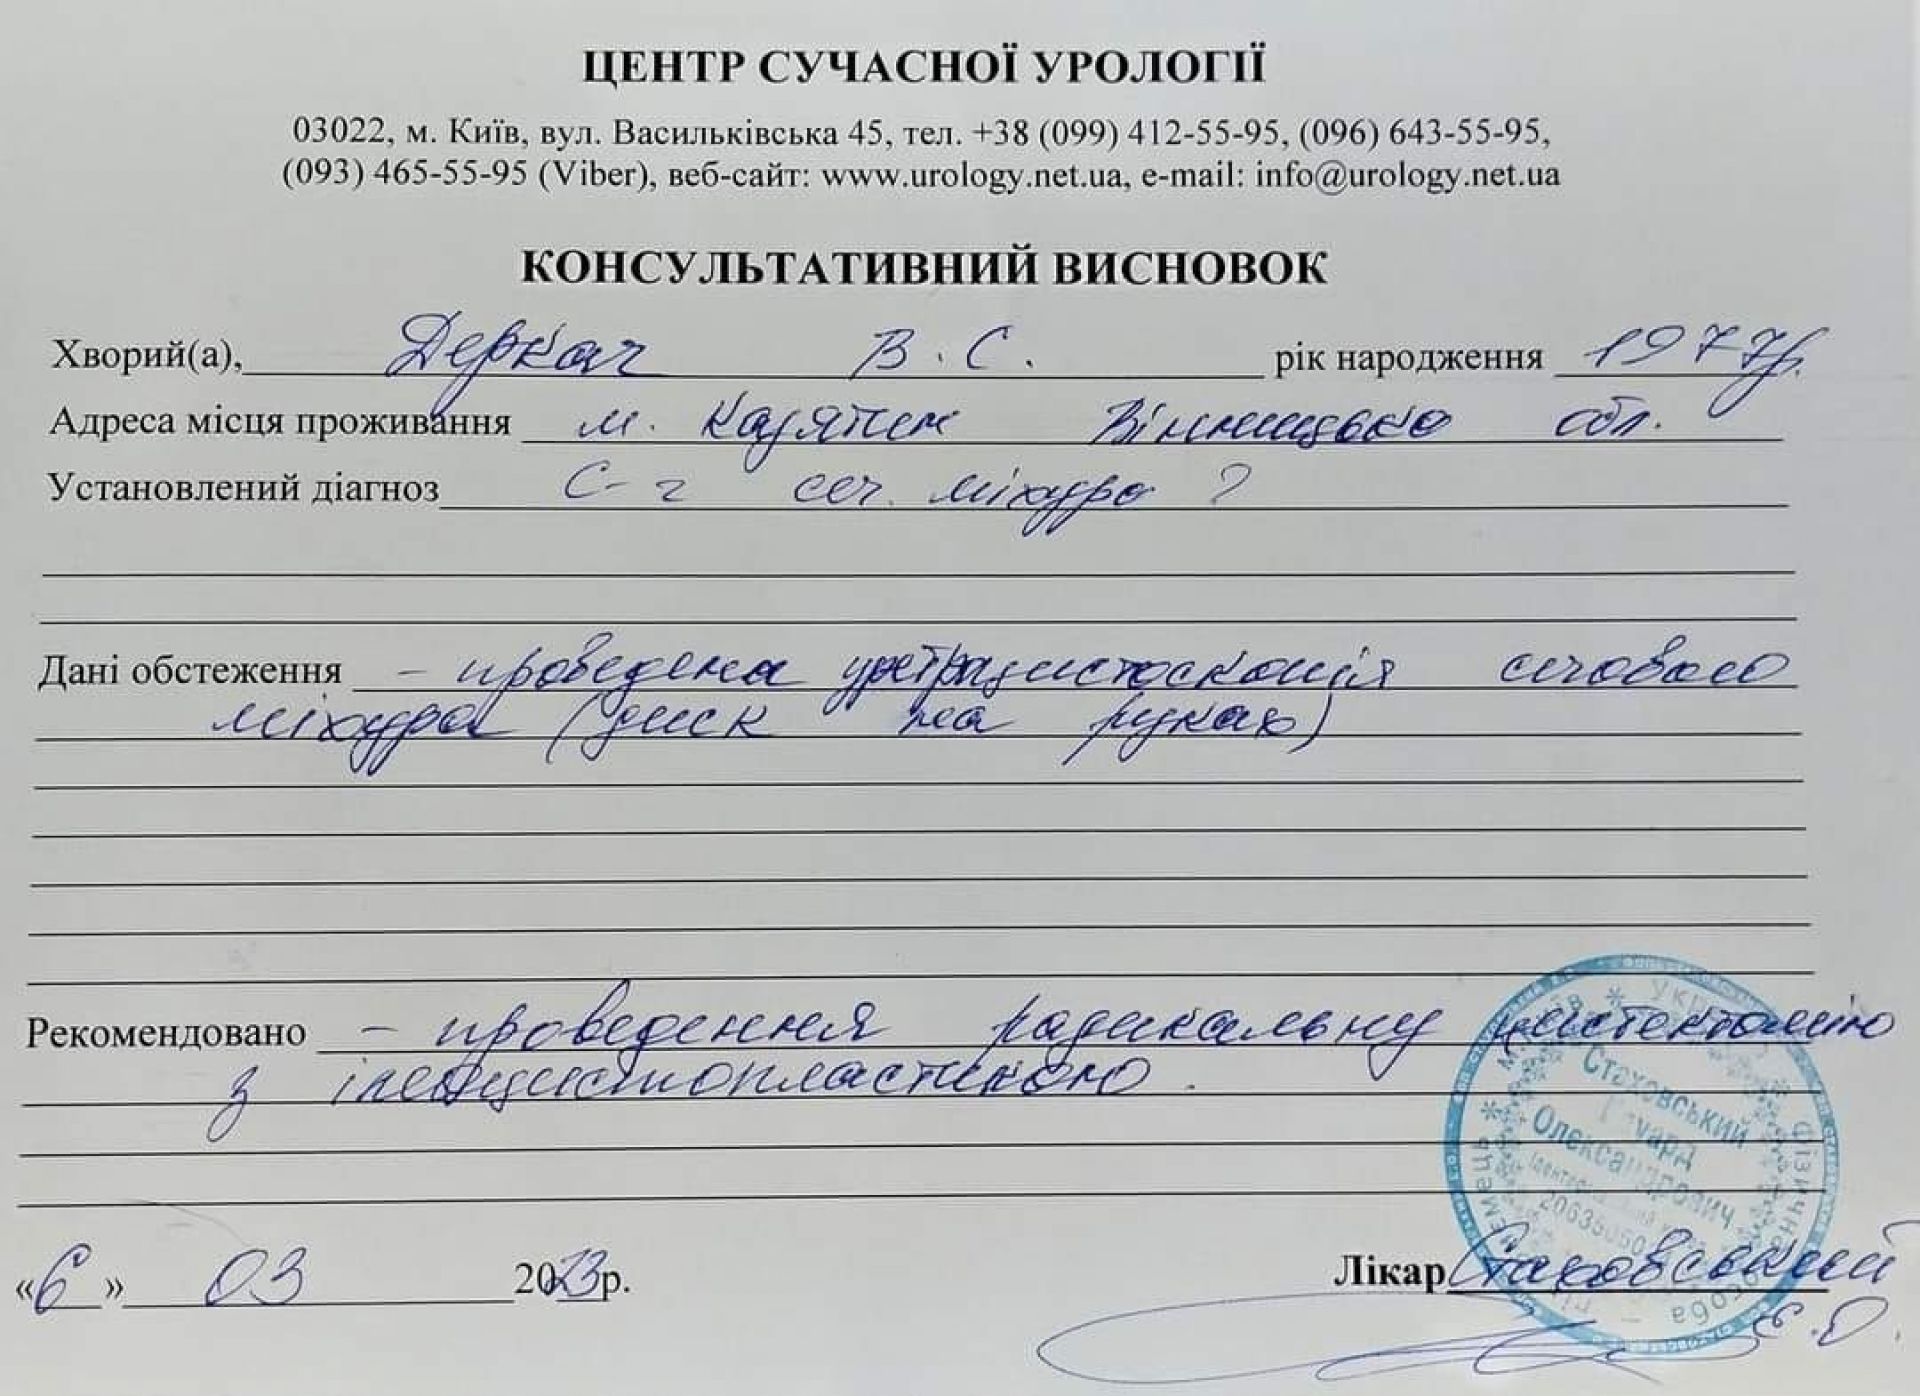 ЦЕНТР СУЧАСНОЇ УРОЛОГІЇ
03022, м. Київ, вул. Васильківська 45, тел. +38 (099) 412-55-95, (096) 643-55-95,
(093) 465-55-95 (Viber), веб-сайт: www.urology.net.ua, e-mail: info@urology.net.ua
КОНСУЛЬТАТИВНИЙ ВИСНОВОК
Хворий(а), Деркач В. С. рік народження 1977р.
Адреса місця проживання м. Казятин Вінницька обл.
Установлений діагноз С-r сеч. міхура ?
Дані обстеження - проведена уретрацистоскопія сечового
міхура (диск на руках)
Рекомендовано - проведення радикальну цистектомію
з ілеоцистопластикою.
Стаховський
Едуард
Олександрович
«6» 03 2023р.
Лікар Стаховський
Е.О.